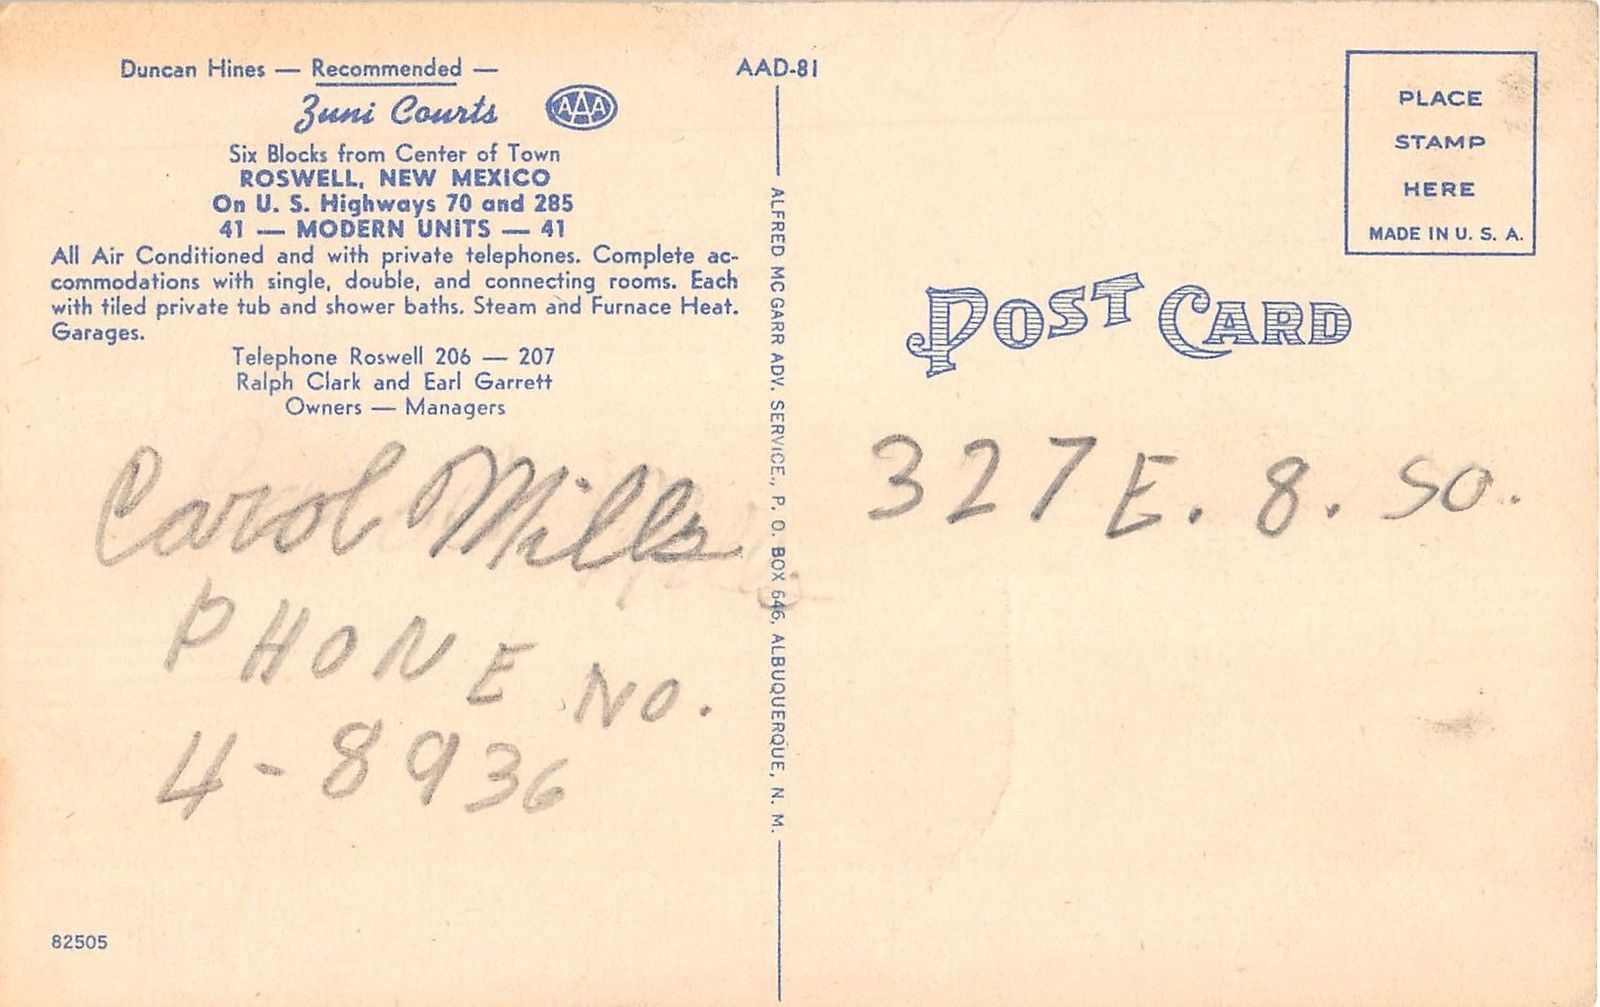 Duncan Hines — Recommended —
Zuni Courts AAA
Six Blocks from Center of Town
ROSWELL, NEW MEXICO
On U. S. Highways 70 and 285
41 — MODERN UNITS — 41
All Air Conditioned and with private telephones. Complete ac-
commodations with single, double, and connecting rooms. Each
with tiled private tub and shower baths. Steam and Furnace Heat.
Garages.
Telephone Roswell 206 — 207
Ralph Clark and Earl Garrett
Owners — Managers
Carol Mills
PHONE NO.
4-8936
82505
AAD-81
ALFRED MC GARR ADV. SERVICE., P. O. BOX 646, ALBUQUERQUE, N. M.
PLACE
STAMP
HERE
MADE IN U. S. A.
POST CARD
327 E. 8. SO.